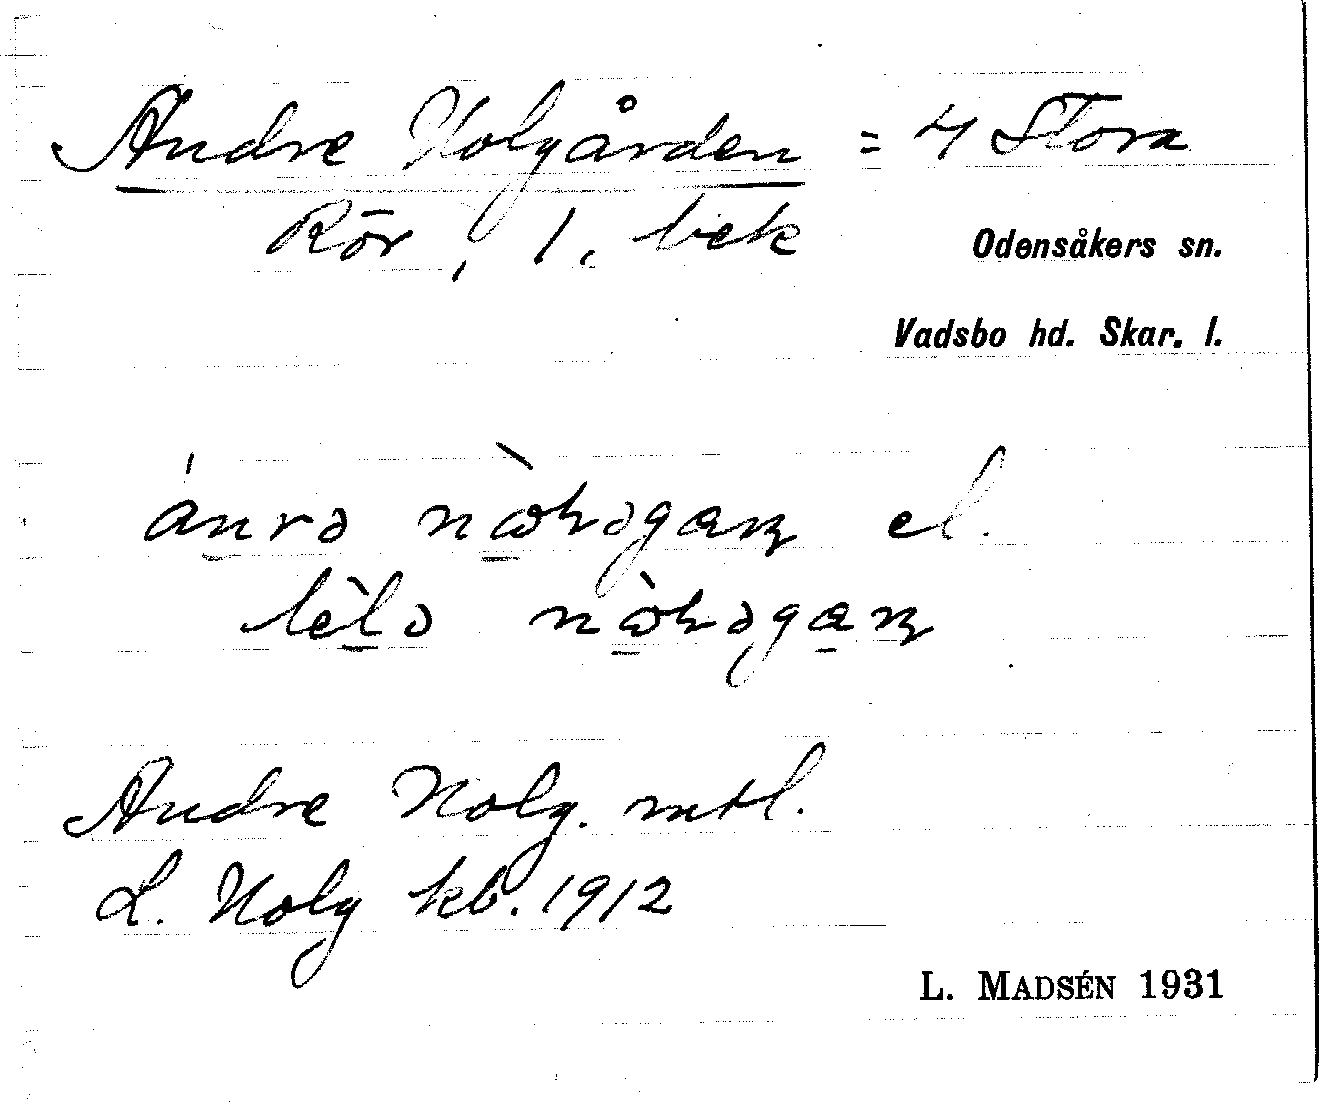 Andre Nolgården = 4 Stora
Rör, 1. bek
Odensåkers sn.
Vadsbo hd. Skar. l.
el.
Andre Nolg. mtl.
L. Nolg kb. 1912
L. MADSÉN 1931